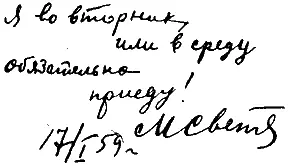 Я во вторник,
или в среду
обязательно
приеду!
17/I 59 г. МСветл